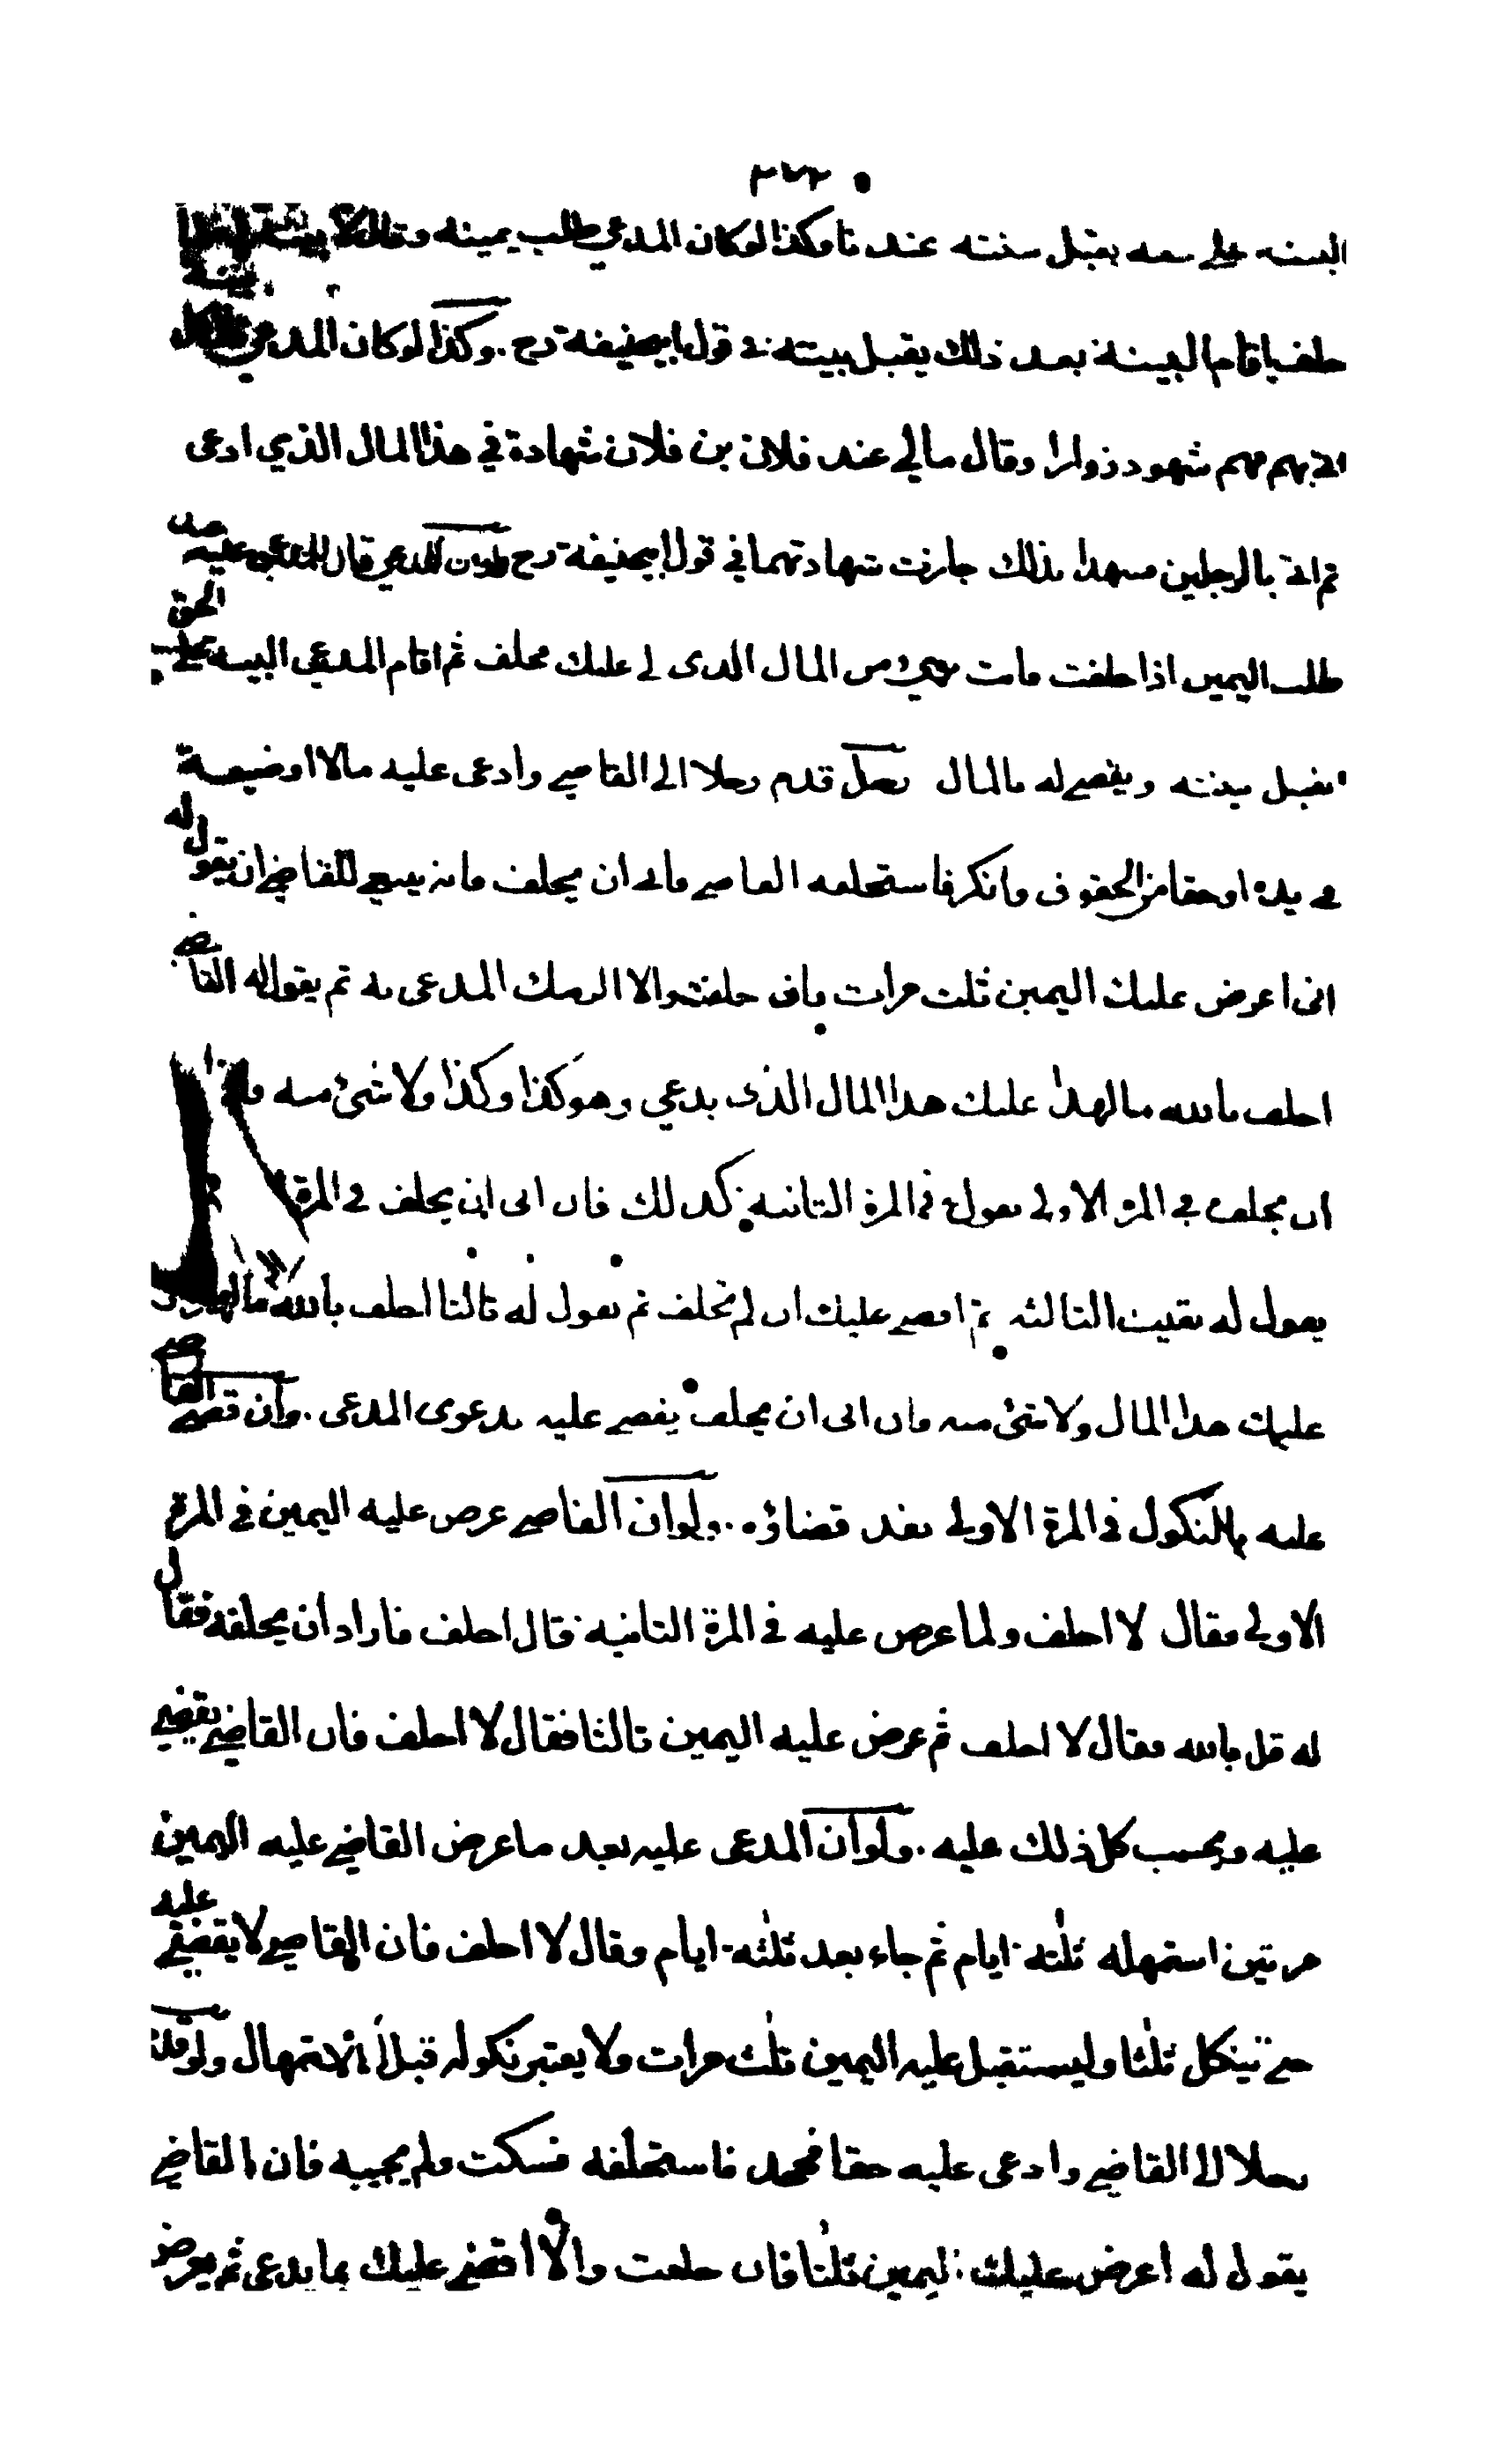 البينة على حقه يقبل بينته عندنا وكذا لو كان المدعي طلب يمينه وقال لا بينة
حلف فاقام البينة بعد ذلك يقبل بينته في قول ابيحنيفة رح . وكذا لو كان المدعي قال كل
شهود زور او قال مالي عند فلان بن فلان شهادة في هذا المال الذي ادعى
ثم اتى بالرجلين فشهدا بذلك جازت شهادتهما في قول ابيحنيفة رح ولو ان المدعي قال للمدعى عليه
طلب اليمين اذا حلفت فانت برئ من المال الذى لي عليك فحلف ثم اقام المدعي البينة على الحق
يقبل بينته ويقضي له بالمال رجل قدم رجلا الى القاضي وادعى عليه مالا او ضيعة
في يده او حقا من الحقوق وانكر فاستحلفه القاضي فابى ان يحلف فانه ينبغي للقاضي ان يقول له
انى اعرض عليك اليمين ثلث مرات فان حلفت والا الزمتك المدعى به ثم يقول له القاضي
احلف بالله ما لهذا عليك هذا المال الذى يدعي وهو كذا وكذا ولا شئ منه فان
ابى ان يحلف في المرة الاولى يقول في المرة الثانية كذلك فان ابى ان يحلف في المرة
يقول له بقيت الثالثة ثم اقضي عليك ان لم تحلف ثم يقول له ثالثا احلف بالله ما لهذا
عليك هذا المال ولا شئ منه فان ابى ان يحلف يقضي عليه بدعوى المدعى . وان قضى القاضي
عليه بالنكول في المرة الاولى نفذ قضاؤه . ولو ان القاضي عرض عليه اليمين في المرة
الاولى فقال لا احلف ولما عرض عليه في المرة الثانية قال احلف فاراد ان يحلفه فقال
له قل بالله فقال لا احلف ثم عرض عليه اليمين ثالثا فقال لا احلف فان القاضي يقضي
عليه ويحسب كل ذلك عليه . ولو ان المدعى عليه بعد ما عرض القاضي عليه اليمين
مرتين استمهله ثلثة ايام ثم جاء بعد ثلثة ايام وقال لا احلف فان القاضي لا يقضي عليه
حتى ينكل ثلثا وليستقبل عليه اليمين ثلث مرات ولا يعتبر نكوله قبل الاستمهال ولو قدم
رجلا الى القاضي وادعى عليه حقا فجحد فاستحلفه فسكت ولم يجيبه فان القاضي
يقول له اعرض عليك اليمين ثلثا فان حلفت والا اقضي عليك بما يدعى ثم يعرض